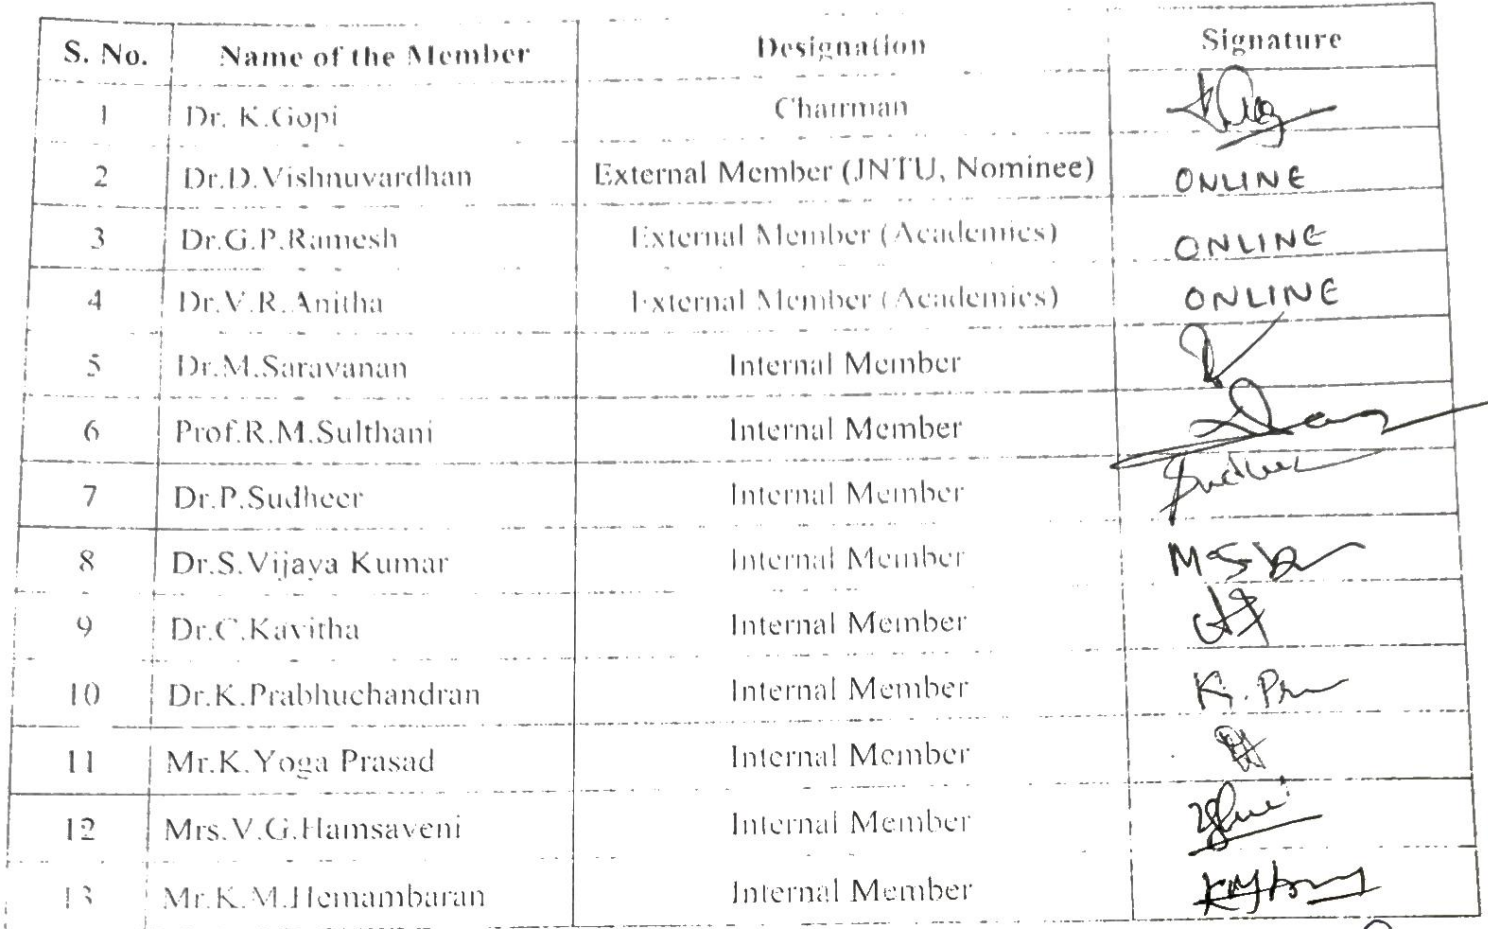 S. No. Name of the Member Designation Signature
1 Dr. K.Gopi Chairman
2 Dr.D.Vishnuvardhan External Member (JNTU, Nominee) ONLINE
3 Dr.G.P.Ramesh External Member (Academics) ONLINE
4 Dr.V.R.Anitha External Member (Academics) ONLINE
5 Dr.M.Saravanan Internal Member
6 Prof.R.M.Sulthani Internal Member
7 Dr.P.Sudheer Internal Member
8 Dr.S.Vijaya Kumar Internal Member
9 Dr.C.Kavitha Internal Member
10 Dr.K.Prabhuchandran Internal Member
11 Mr.K.Yoga Prasad Internal Member
12 Mrs.V.G.Hamsaveni Internal Member
13 Mr.K.M.Hemambaran Internal Member